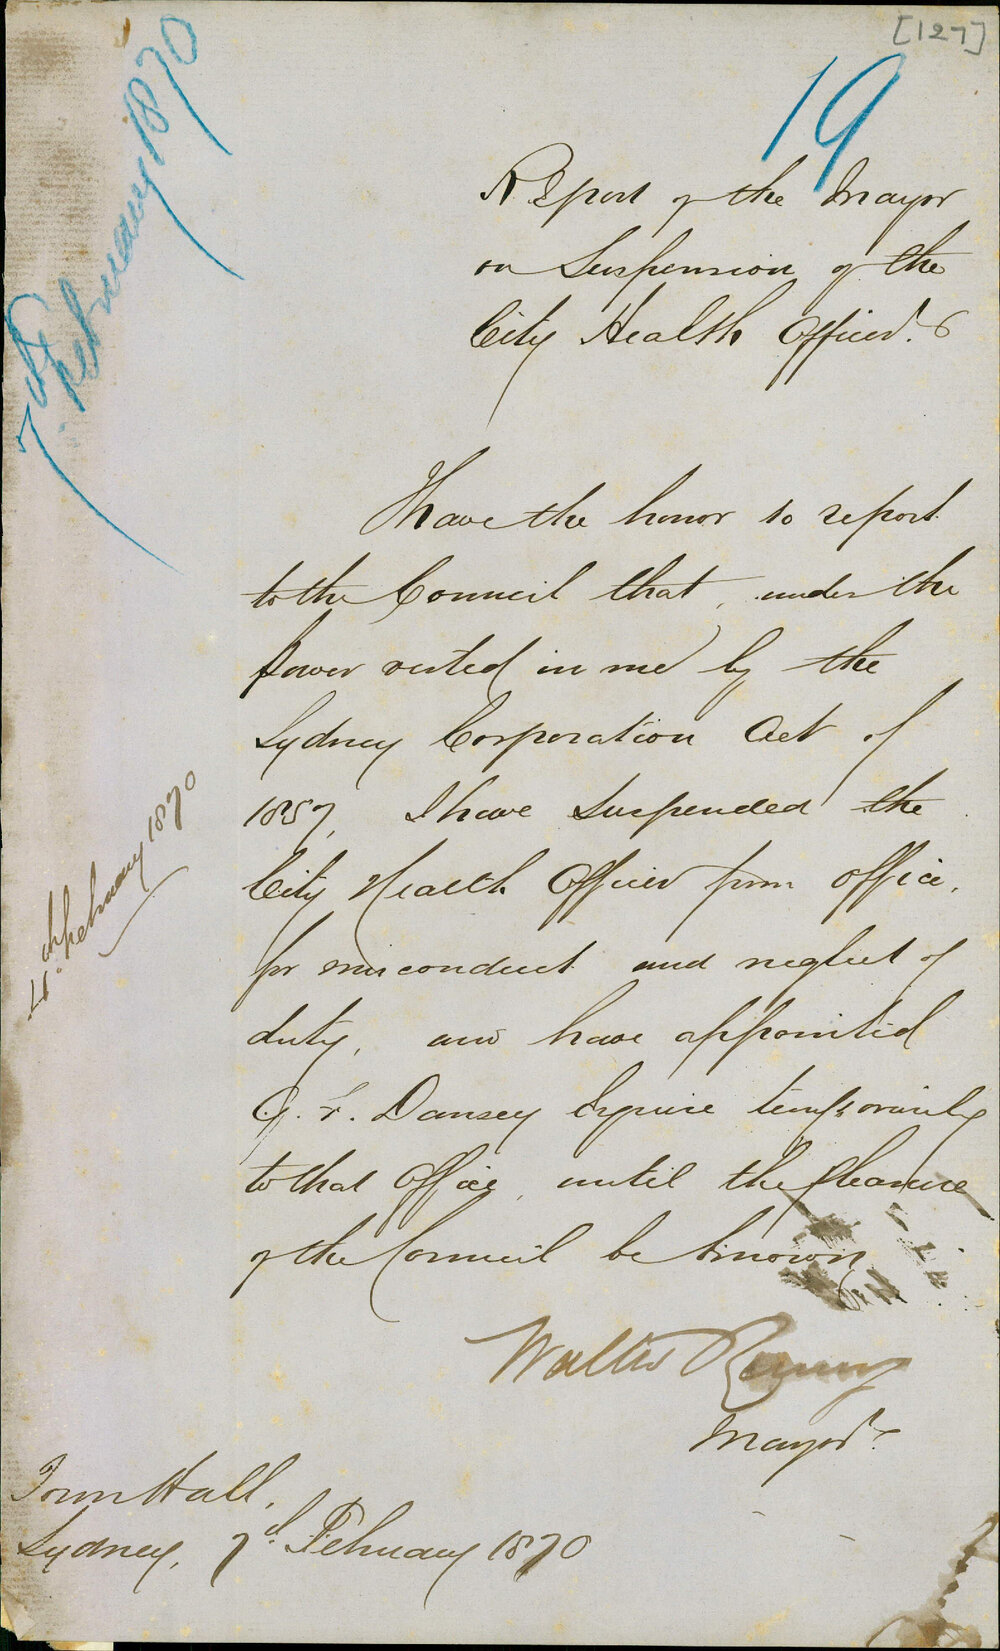 [127]
19
7th February 1870
Report of the Mayor
on Suspension of the
City Health Officer.
I have the honor to report
to the Council that, under the
power vested in me by the
Sydney Corporation Act of
1857, I have suspended the
City Health Officer from office,
for misconduct and neglect of
duty, and have appointed
G. F. Dansey Esquire temporarily
to that office, until the pleasure
of the Council be known.
4th February 1870
Walter Renny
Mayor.
Town Hall,
Sydney, 7th February 1870